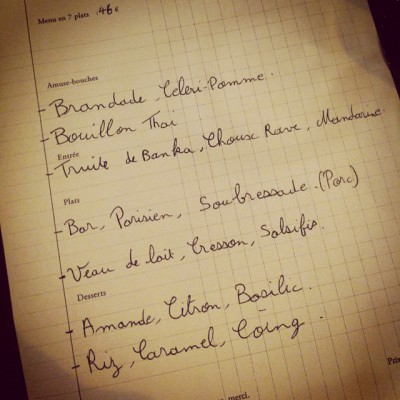 Menu en 7 plats : 46 €
Amuse-bouches
- Brandade, Céleri-Pomme.
- Bouillon Thaï
Entrée
- Truite de Banka, Choux Rave, Mandarine.
Plats
- Bar, Poirier, Soubressade. (Porc)
- Veau de lait, Cresson, Salsifis.
Desserts
- Amande, Citron, Basilic.
- Riz, Caramel, Coing.
merci.